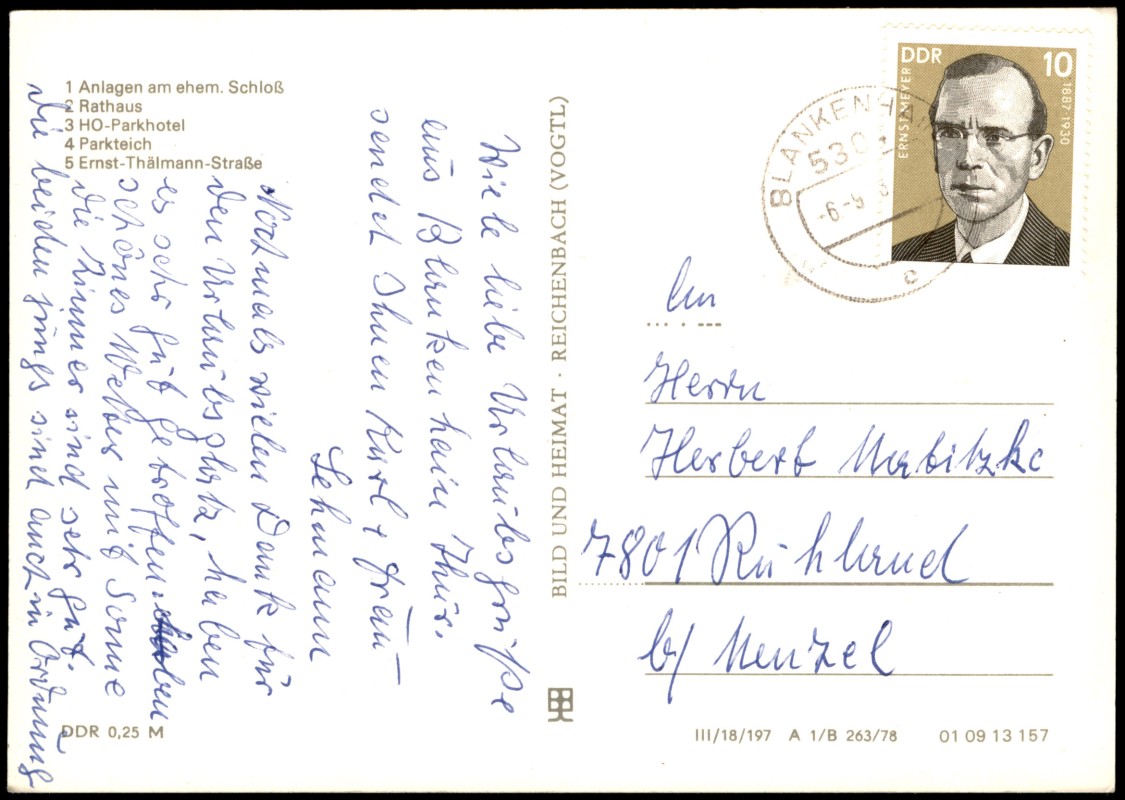 1 Anlagen am ehem. Schloß
2 Rathaus
3 HO-Parkhotel
4 Parkteich
5 Ernst-Thälmann-Straße
Viele liebe Urlaubsgrüße
aus Blankenhain Thür.
sendet Ihnen Karl + Frau
Lehmann
Nochmals vielen Dank für
den Urlaubsplatz, haben
es sehr gut getroffen.
schönes Wetter mit Sonne
die Zimmer sind sehr gut.
die beiden jungs sind auch in Ordnung
DDR 0,25 M
BILD UND HEIMAT · REICHENBACH (VOGTL)
DDR 10
ERNST MEYER
1887-1930
BLANKENHAI
530
-6.-9
c
An
Herrn
Herbert
7801 Ruhland
b/ Menzel
III/18/197 A 1/B 263/78 01 09 13 157